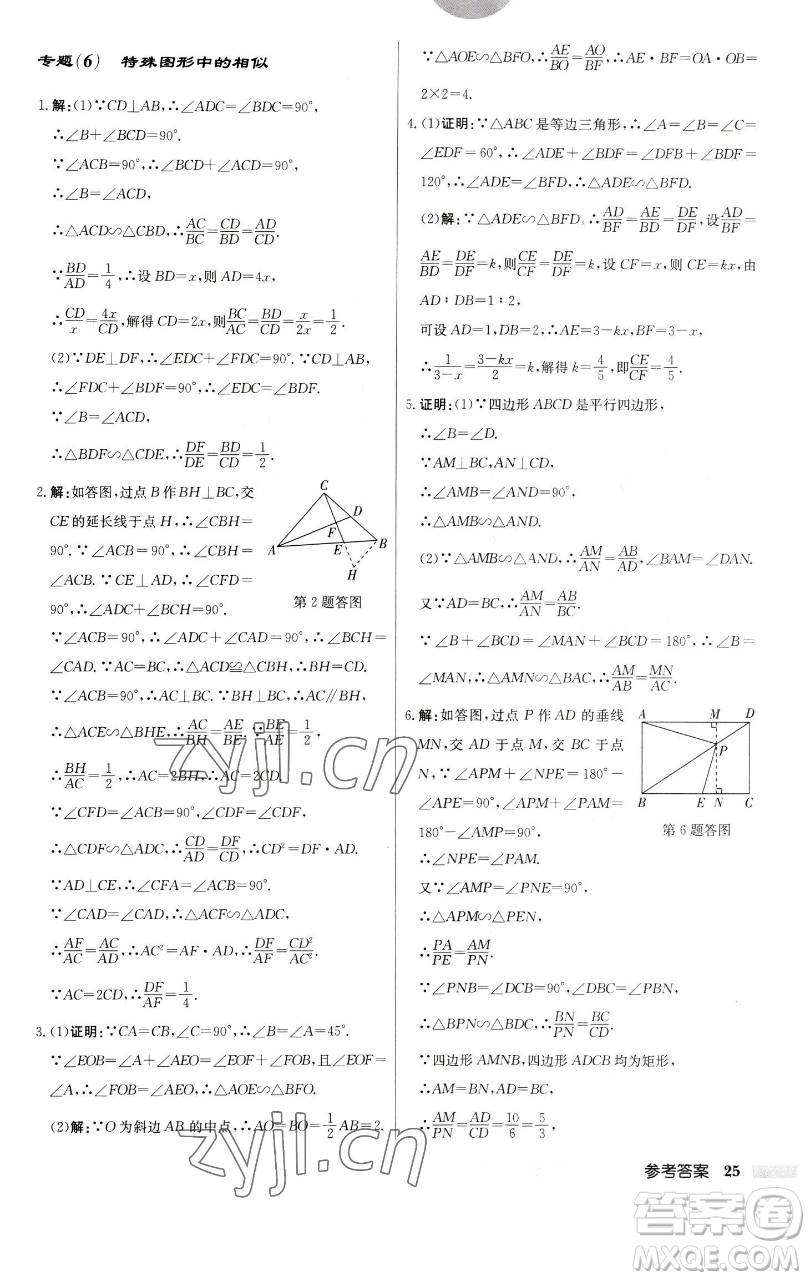 专题(6) 特殊图形中的相似
1.解:(1)∵CD⊥AB,∴∠ADC=∠BDC=90°,
∴∠B+∠BCD=90°.
∵∠ACB=90°,∴∠BCD+∠ACD=90°,
∴∠B=∠ACD,
∴△ACD∽△CBD,∴AC/BC=CD/BD=AD/CD.
∵BD/AD=1/4,∴设BD=x,则AD=4x,
∴CD/x=4x/CD,解得CD=2x,则BC/AC=BD/CD=x/2x=1/2.
(2)∵DE⊥DF,∴∠EDC+∠FDC=90°.
∵∠FDC+∠BDF=90°,∴∠EDC=∠BDF.
∵∠B=∠ACD,
∴△BDF∽△CDE,∴DF/DE=BD/CD=1/2.
2.解:如答图,过点B作BH⊥BC,交
CE的延长线于点H,∴∠CBH=
90°.∵∠ACB=90°,∴∠CBH=
∠ACB.∵CE⊥AD,∴∠CFD=
90°,∴∠ADC+∠BCH=90°.
∵∠ACB=90°,∴∠ADC+∠CAD=90°,∴∠BCH=
∠CAD.∵AC=BC,∴△ACD≌△CBH,∴BH=CD.
∵∠ACB=90°,∴AC⊥BC.∵BH⊥BC,∴AC∥BH,
∴△ACE∽△BHE,∴AC/BH=AE/BE.∵BE/AE=1/2,
∴BH/AC=1/2,∴AC=2BH,∴AC=2CD.
∵∠CFD=∠ACD=90°,∠ADC=∠CDF,
∴△CDF∽△ADC,∴CD/AD=DF/CD,∴CD²=DF·AD.
∵AD⊥CE,∴∠CFA=∠ACB=90°.
∵∠CAD=∠CAD,∴△ACF∽△ADC,
∴AF/AC=AC/AD,∴AC²=AF·AD,∴DF/AF=CD²/AC².
∵AC=2CD,∴DF/AF=1/4.
3.(1)证明:∵CA=CB,∠C=90°,∴∠B=∠A=45°.
∵∠EOB=∠A+∠AEO=∠EOF+∠FOB,且∠EOF=
∠A,∴∠FOB=∠AEO,∴△AOE∽△BFO.
(2)解:∵O为斜边AB的中点,∴AO=BO=1/2AB=2.
C
D
F
A
E
B
H
第2题答图
∵△AOE∽△BFO,∴AE/BO=AO/BF,∴AE·BF=OA·OB=
2×2=4.
4.(1)证明:∵△ABC是等边三角形,∴∠A=∠B=∠C=
∠EDF=60°,∴∠ADE+∠BDF=∠DFB+∠BDF=
120°,∴∠ADE=∠BFD,∴△ADE∽△BFD.
(2)解:∵△ADE∽△BFD,∴AD/BF=AE/BD=DE/DF,设AD/BF=
AE/BD=DE/DF=k,则CE/CF=DE/DF=k,设CF=x,则CE=kx,由
AD∶DB=1∶2,
可设AD=1,DB=2,∴AE=3-kx,BF=3-x,
∴1/(3-x)=(3-kx)/2=k,解得k=4/5,即CE/CF=4/5.
5.证明:(1)∵四边形ABCD是平行四边形,
∴∠B=∠D.
∵AM⊥BC,AN⊥CD,
∴∠AMB=∠AND=90°,
∴△AMB∽△AND.
(2)∵△AMB∽△AND,∴AM/AN=AB/AD,∠BAM=∠DAN.
又∵AD=BC,∴AM/AN=AB/BC.
∵∠B+∠BCD=∠MAN+∠BCD=180°,∴∠B=
∠MAN,∴△AMN∽△BAC,∴AM/AB=MN/AC.
6.解:如答图,过点P作AD的垂线
MN,交AD于点M,交BC于点
N,∵∠APM+∠NPE=180°-
∠APE=90°,∠APM+∠PAM=
180°-∠AMP=90°,
∴∠NPE=∠PAM.
又∵∠AMP=∠PNE=90°,
∴△APM∽△PEN,
∴PA/PE=AM/PN.
∵∠PNB=∠DCB=90°,∠DBC=∠PBN,
∴△BPN∽△BDC,∴BN/PN=BC/DC.
∵四边形AMNB,四边形ADCB均为矩形,
∴AM=BN,AD=BC,
∴AM/PN=AD/CD=10/6=5/3,
A
M
D
P
B
E
N
C
第6题答图
zyjl.cn
zyjl.cn
参考答案 25
答案圈
MXQE.COM